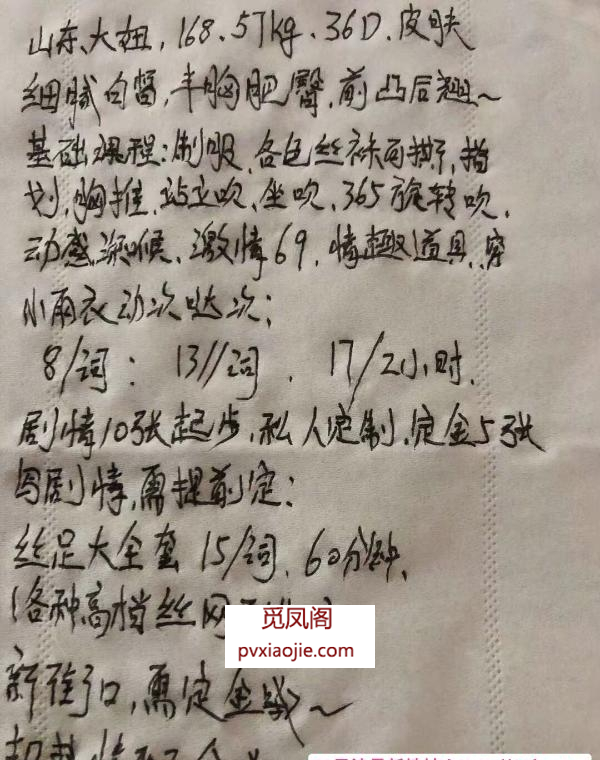 山东、大妞,168.57kg、36D.皮肤
细腻白皙,丰胸肥臀,前凸后翘~
基础课程:制服、各色丝袜可撕,指
划,胸推、站立吹、坐吹、365旋转吹、
动感深喉、激情69,情趣道具.穿
小雨衣动次哒次;
8/词: 13//词、17/2小时.
剧情10张起步、私人定制.定金5张
写剧情,需提前定;
丝足大全套 15/词、60分钟、
(各种高档丝网
觅凤阁
pvxiaojie.com
新街口,需定金